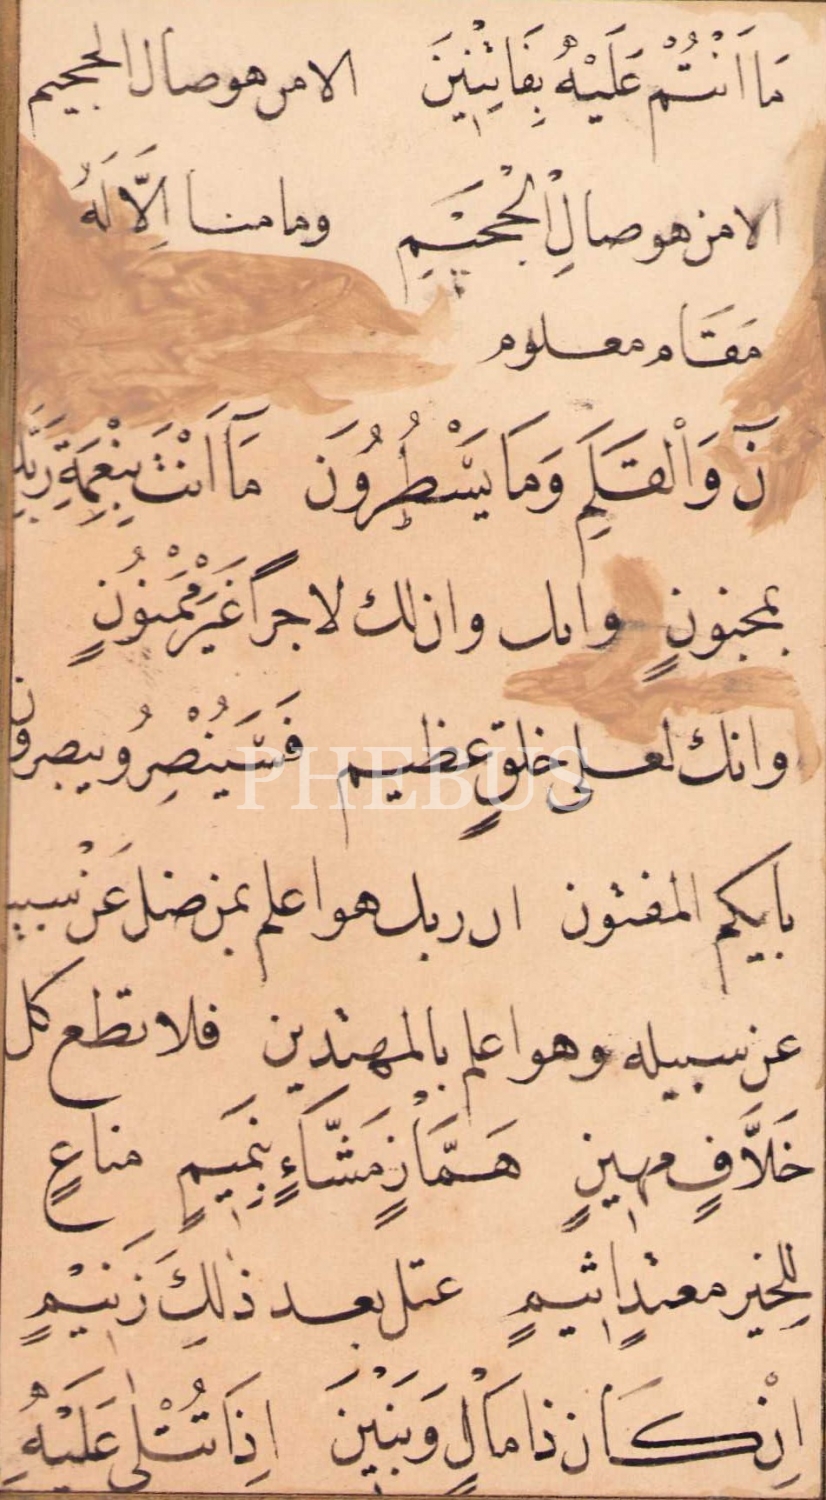 مَا اَنْتُمْ عَلَيْهِ بِفَاتِنِينَ الا من هو صال الجحيم
الا من هو صالِ الْجَحِيمِ وما منا اِلَّا لَهُ
مَقَام معلوم
نٓ وَالْقَلَمِ وَمَا يَسْطُرُونَ مَآ اَنْتَ بِنِعْمَةِ رَبِّكَ
بمجنونٍ وانك وان لك لاجراً غَيْرَ مَمْنُونٍ
وانك لعلى خلقٍ عظيم فَسَتُبْصِرُ ويبصرون
بايكم المفتون ان ربك هو اعلم بمن ضل عَنْ سبيله
عن سبيله وهو اعلم بالمهتدين فلا تطع كل
حَلَّافٍ مهينٍ هَمَّازٍ مَشَّاءٍ بِنَمِيمٍ مناعٍ
لِلخير معتدٍ اثيمٍ عتل بعد ذٰلِكَ زَنِيْمٍ
اِنْ كَانَ ذا مَالٍ وَبَنِيْنَ اِذَا تُتْلٰى عَلَيْهِ
PHEBUS